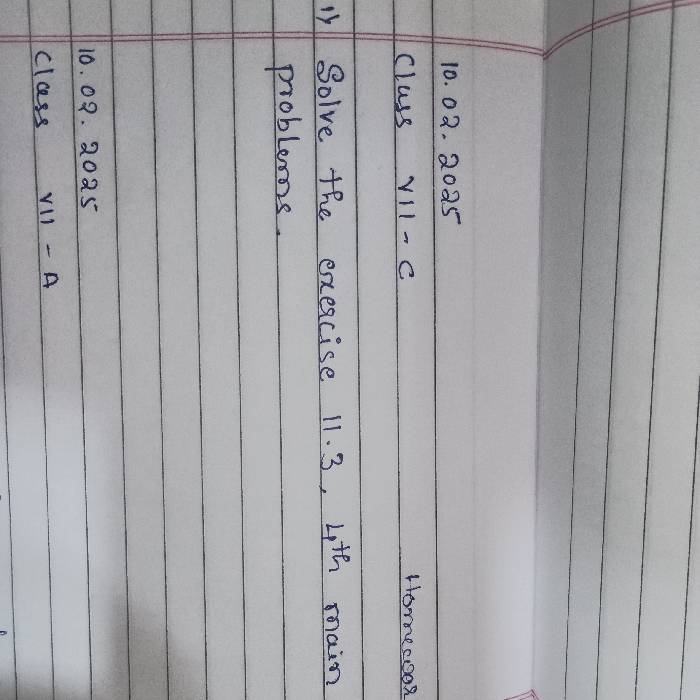 10.02.2025
Class VII - C
1) Solve the exercise 11.3, 4th main
problems.
10.02.2025
Class VII - A